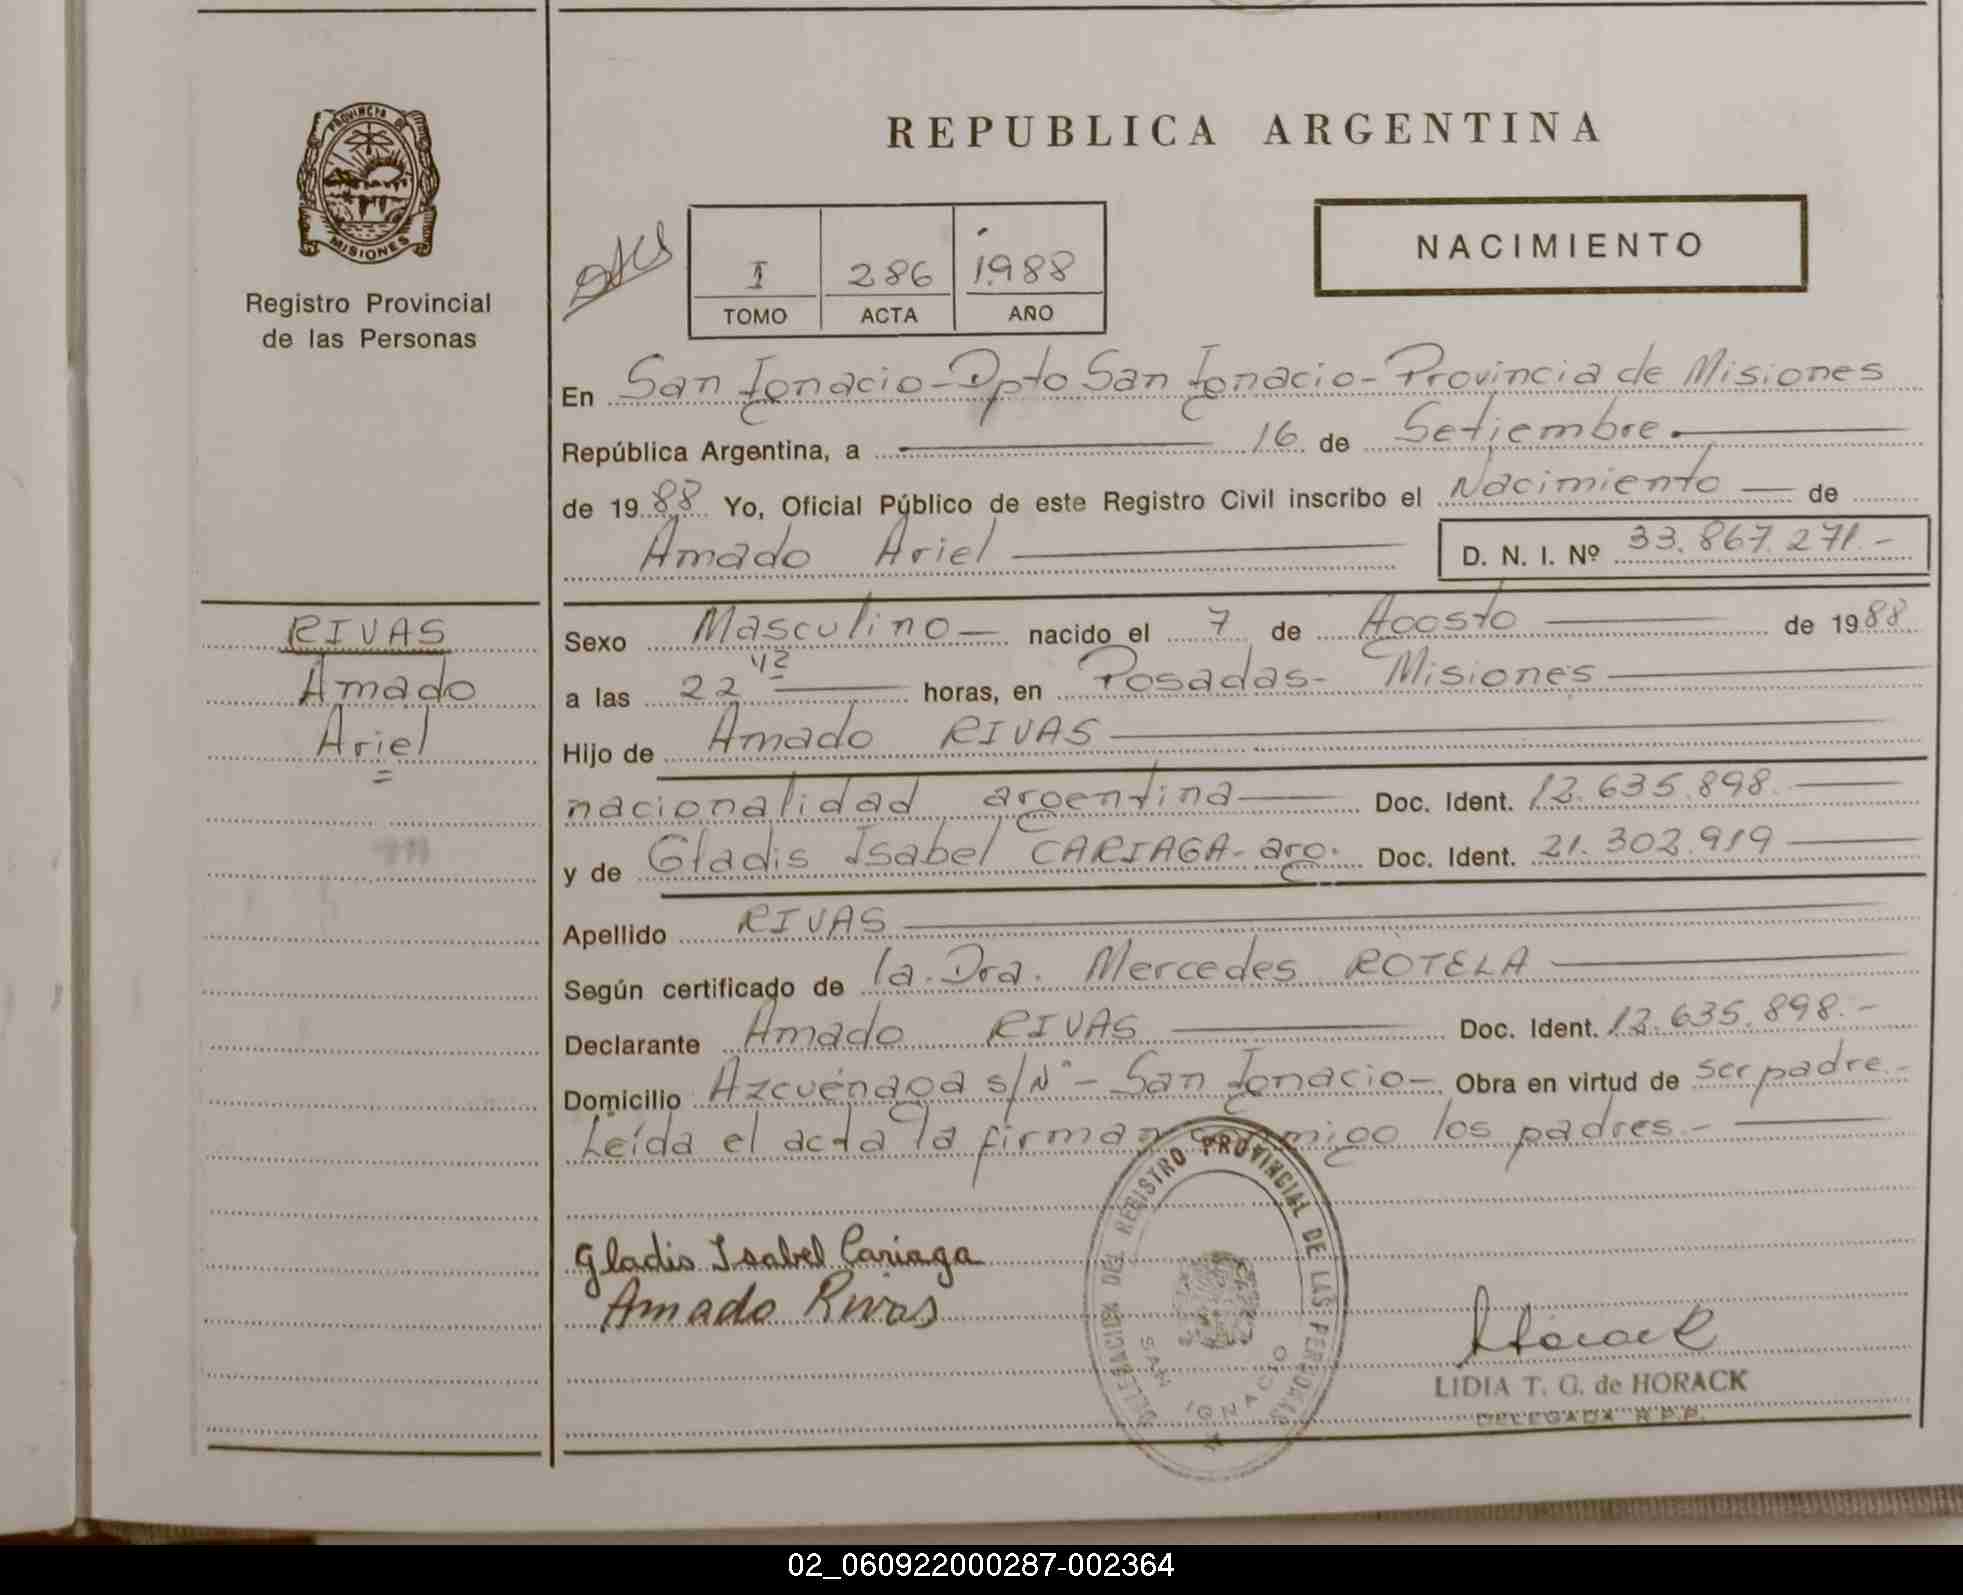 PROVINCIA DE
MISIONES
Registro Provincial
de las Personas
REPUBLICA ARGENTINA
I 286 1988
TOMO ACTA AÑO
NACIMIENTO
En San Ignacio - Dpto San Ignacio - Provincia de Misiones
República Argentina, a 16 de Setiembre.
de 1988 Yo, Oficial Público de este Registro Civil inscribo el Nacimiento de
Amado Ariel D. N. I. Nº 33.867.271.-
RIVAS
Amado
Ariel
Sexo Masculino nacido el 7 de Agosto de 1988
a las 22 42 horas, en Posadas - Misiones
Hijo de Amado RIVAS
nacionalidad argentina Doc. Ident. 12.635.898.
y de Gladis Isabel CARIAGA - arg. Doc. Ident. 21.302.919
Apellido RIVAS
Según certificado de la Dra. Mercedes ROTELA
Declarante Amado RIVAS Doc. Ident. 12.635.898.-
Domicilio Azcuénaga s/Nº - San Ignacio - Obra en virtud de ser padre.-
Leída el acta la firman conmigo los padres.-
Gladis Isabel Cariaga
Amado Rivas
DELEGACION DEL REGISTRO PROVINCIAL DE LAS PERSONAS
SAN IGNACIO
Horack
LIDIA T. G. de HORACK
DELEGADA R.P.P.
02_060922000287-002364